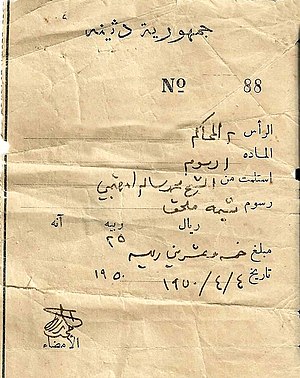 جمهورية دثينه
No 88
الرأس م المحاكم
الماده رسوم
استلمت من الشيخ محمد سالم
رسوم ملحق
ريال ربيه آنه
٢٥
مبلغ خمسه وعشرين ربيه
تاريخ ١٩٥٠/٤/٤ ١٩٥٠
الأمضاء